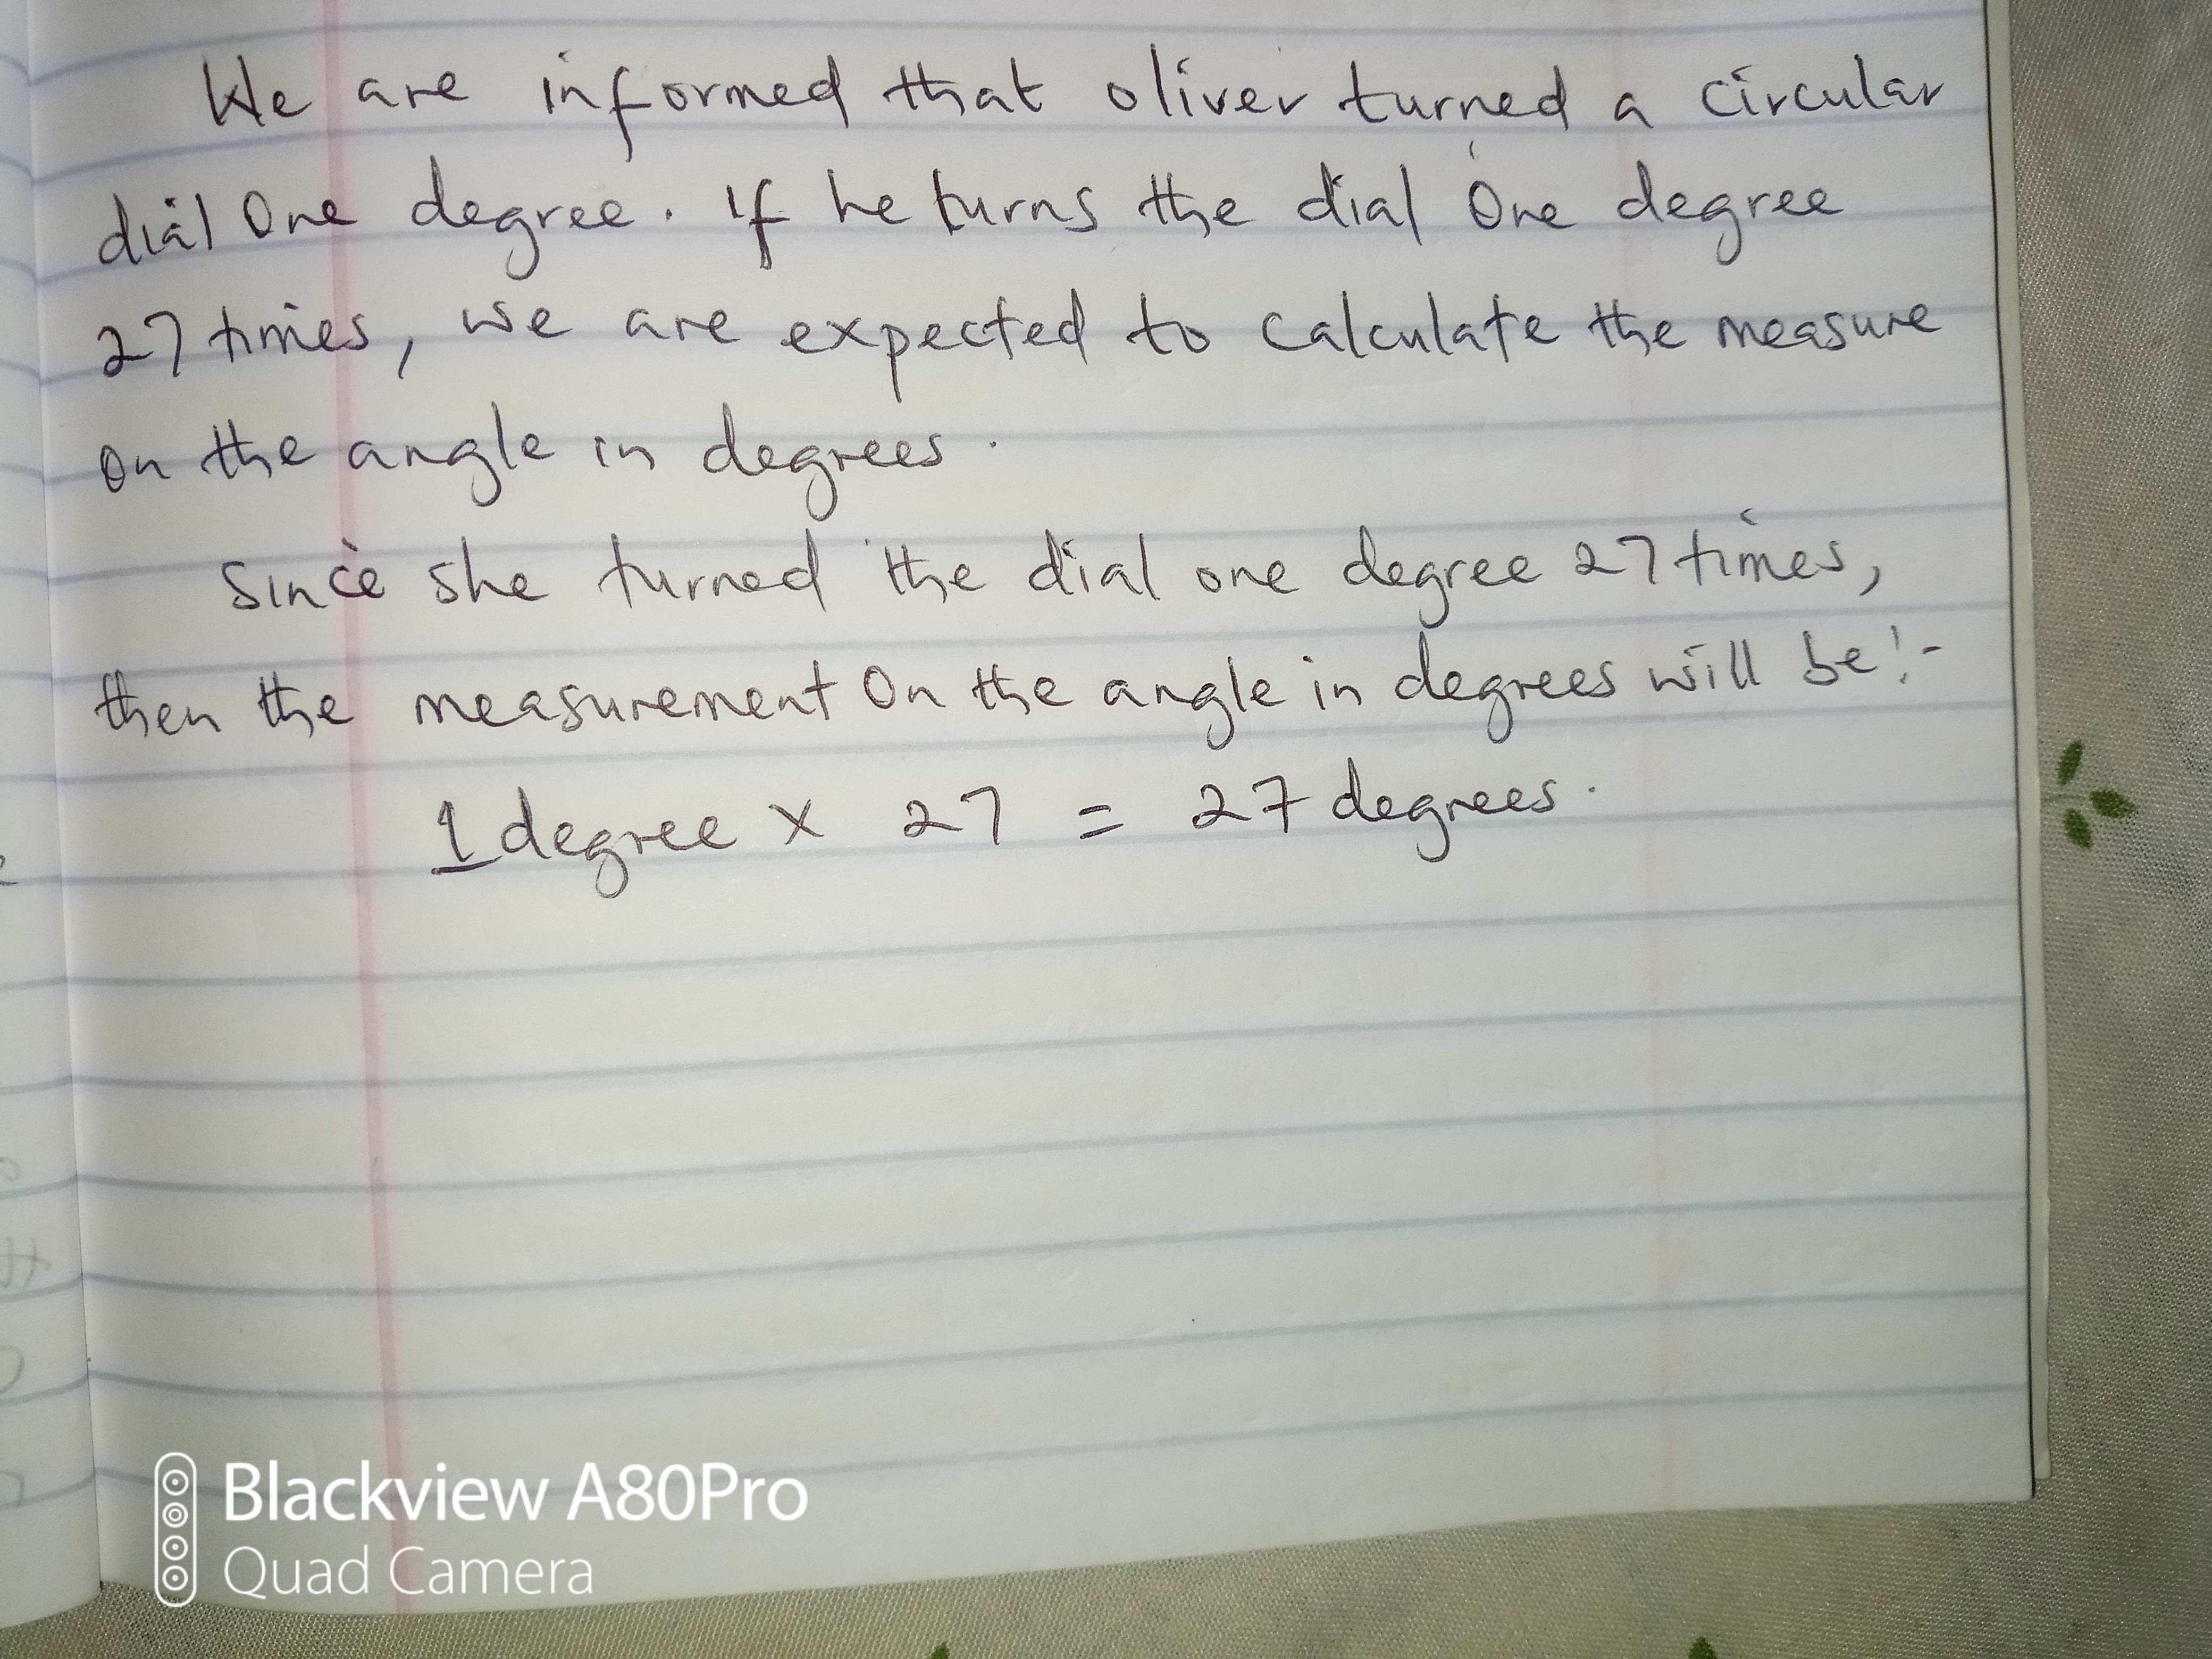 We are informed that oliver turned a circular
dial One degree. If he turns the dial One degree
27 times, we are expected to calculate the measure
on the angle in degrees.
Since she turned the dial one degree 27 times,
then the measurement On the angle in degrees will be:-
1 degree x 27 = 27 degrees.
Blackview A80Pro
Quad Camera